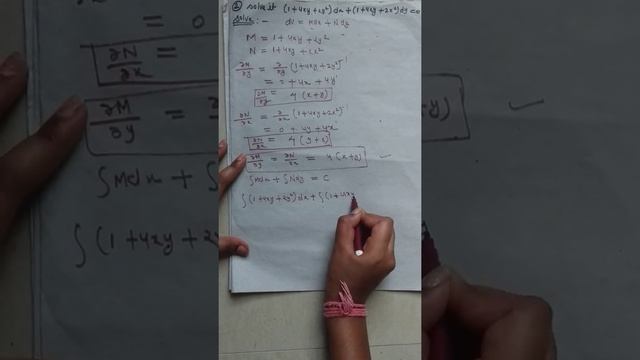 ② solve it (1+4xy+2y²)dx+(1+4xy+2x²)dy=0
Solve:- du = Mdx + Ndy
M = 1+4xy+2y²
N = 1+4xy+2x²
∂M/∂y = ∂/∂y (1+4xy+2y²)
= 0 + 4x + 4y
∂M/∂y = 4(x+y)
∂N/∂x = ∂/∂x (1+4xy+2x²)
= 0 + 4y + 4x
∂N/∂x = 4(y+x)
∂M/∂y = ∂N/∂x = 4(x+y)
∫Mdx + ∫Ndy = C
∫(1+4xy+2y²)dx + ∫(1+4xy